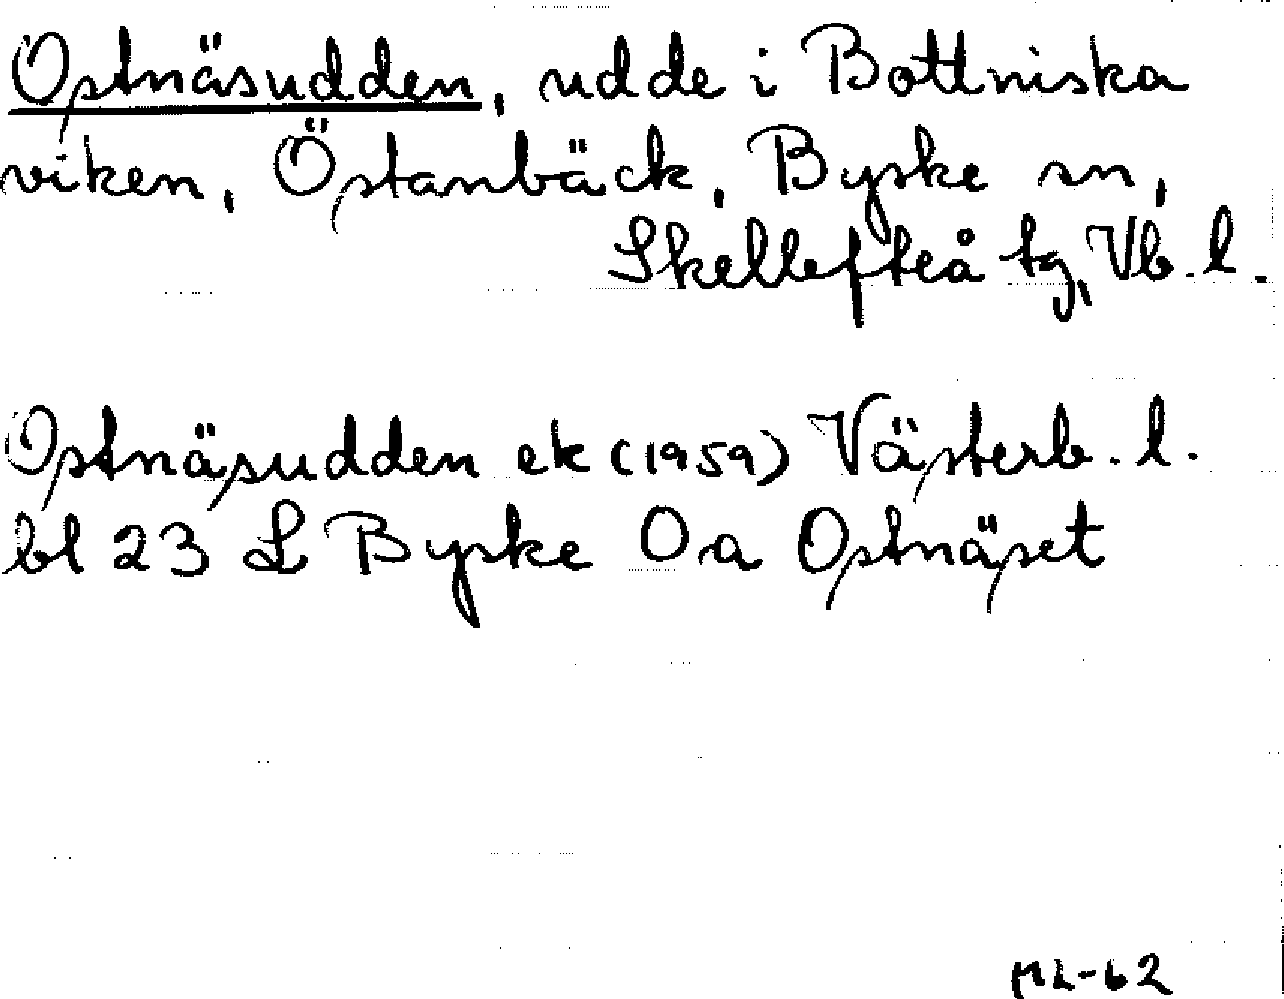 Ostnäsudden, udde i Bottniska
viken, Östanbäck, Byske sn,
Skellefteå tg, Vb. l.
Ostnäsudden ek (1959) Västerb. l.
bl 23 L Byske O.a Ostnäset
ML-62